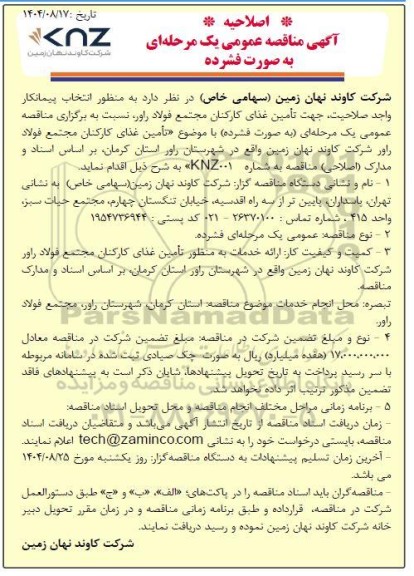 تاریخ :۱۴۰۴/۰۸/۱۷
KNZ
شرکت کاوند نهان زمین
* اصلاحیه *
آگهی مناقصه عمومی یک مرحله‌ای
به صورت فشرده
شرکت کاوند نهان زمین (سهامی خاص) در نظر دارد به منظور انتخاب پیمانکار
واجد صلاحیت، جهت تأمین غذای کارکنان مجتمع فولاد راور، نسبت به برگزاری مناقصه
عمومی یک مرحله‌ای (به صورت فشرده) با موضوع «تأمین غذای کارکنان مجتمع فولاد
راور شرکت کاوند نهان زمین واقع در شهرستان راور استان کرمان، بر اساس اسناد و
مدارک (اصلاحی) مناقصه به شماره KNZ۰۰۱» به شرح ذیل اقدام نماید.
۱ - نام و نشانی دستگاه مناقصه گزار: شرکت کاوند نهان زمین(سهامی خاص) به نشانی
تهران، پاسداران، پایین تر از سه راه اقدسیه، خیابان تنگستان چهارم، مجتمع حیات سبز،
واحد ۴۱۵ ، شماره تماس : ۲۶۳۷۰۱۰۰ - ۰۲۱ کد پستی : ۱۹۵۴۷۳۶۹۴۴
۲ - نوع مناقصه: عمومی یک مرحله‌ای فشرده.
۳ - کمیت و کیفیت کار: ارائه خدمات به منظور تأمین غذای کارکنان مجتمع فولاد راور
شرکت کاوند نهان زمین واقع در شهرستان راور استان کرمان، بر اساس اسناد و مدارک
مناقصه.
تبصره: محل انجام خدمات موضوع مناقصه: استان کرمان، شهرستان راور، مجتمع فولاد
راور.
۴ - نوع و مبلغ تضمین شرکت در مناقصه: مبلغ تضمین شرکت در مناقصه معادل
۱۷،۰۰۰،۰۰۰،۰۰۰ (هفده میلیارد) ریال به صورت چک صیادی ثبت شده در سامانه مربوطه
با سر رسید پرداخت به تاریخ تحویل پیشنهادها. شایان ذکر است به پیشنهادهای فاقد
تضمین مذکور ترتیب اثر داده نخواهد شد.
۵ - برنامه زمانی مراحل مختلف انجام مناقصه و محل تحویل اسناد مناقصه:
- زمان دریافت اسناد مناقصه از تاریخ انتشار آگهی می‌باشد و متقاضیان دریافت اسناد
مناقصه، بایستی درخواست خود را به نشانی tech@zaminco.com اعلام نمایند.
- آخرین زمان تسلیم پیشنهادات به دستگاه مناقصه‌گزار: روز یکشنبه مورخ ۱۴۰۴/۰۸/۲۵
می باشد.
- مناقصه‌گران باید اسناد مناقصه را در پاکت‌های؛ «الف»، «ب» و «ج» طبق دستورالعمل
شرکت در مناقصه، قرارداده و طبق برنامه زمانی مناقصه و در زمان مقرر تحویل دبیر
خانه شرکت کاوند نهان زمین نموده و رسید دریافت نمایند.
شرکت کاوند نهان زمین
ParsNamadData